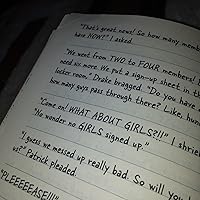 "That's great news! So how many mem
have NOW?" I asked.
"We went from TWO to FOUR members!
need six more. We put a sign-up sheet in th
locker room." Drake bragged. "Do you have
how many guys pass through there? Like, hun
"Come on! WHAT ABOUT GIRLS?!!" I shrie
"No wonder no GIRLS signed up."
"I guess we messed up really bad. So will you
us?" Patrick pleaded.
"PLEEEEEASE!!!"